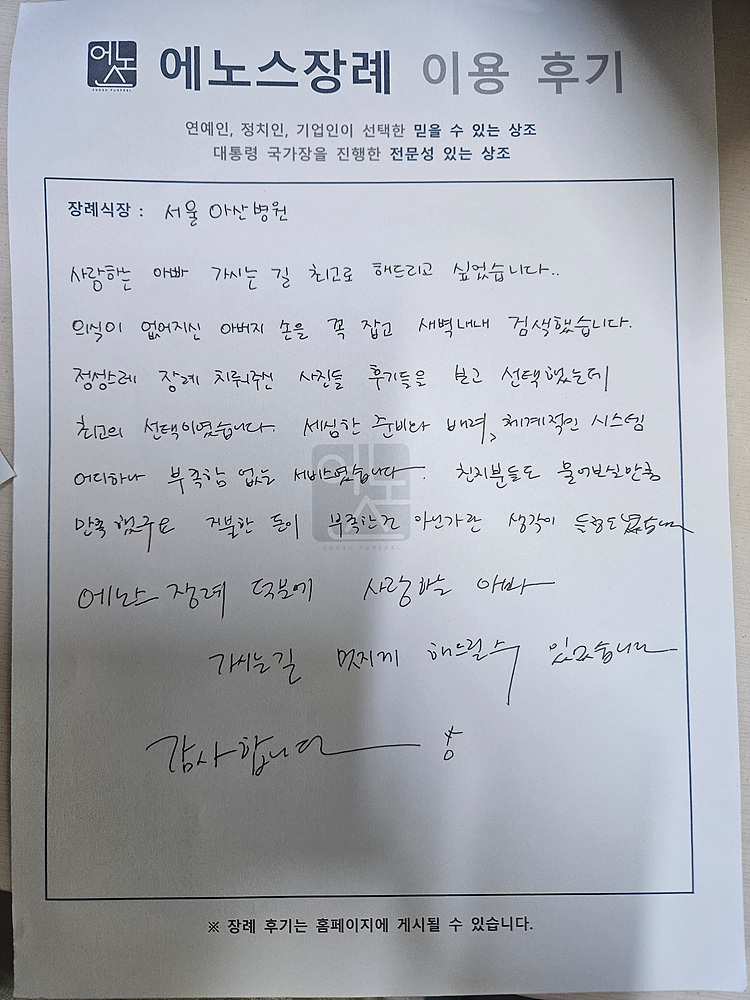 에노스
ENOSH FUNERAL
에노스장례 이용 후기
연예인, 정치인, 기업인이 선택한 믿을 수 있는 상조
대통령 국가장을 진행한 전문성 있는 상조
장례식장 : 서울 아산병원
사랑하는 아빠 가시는 길 최고로 해드리고 싶었습니다..
의식이 없어지신 아버지 손을 꼭 잡고 새벽내내 검색했습니다.
정성스레 장례 치뤄주신 사진들 후기들을 보고 선택했는데
최고의 선택이였습니다. 세심한 준비와 배려, 체계적인 시스템
어디하나 부족함 없는 서비스였습니다. 친지분들도 물어보실만큼
만족했구요 지불한 돈이 부족한건 아닌가란 생각이 들정도였습니다
에노스 장례 덕분에 사랑하는 아빠
가시는길 멋지게 해드릴수 있었습니다
감사합니다
에노스
ENOSH FUNERAL
※ 장례 후기는 홈페이지에 게시될 수 있습니다.